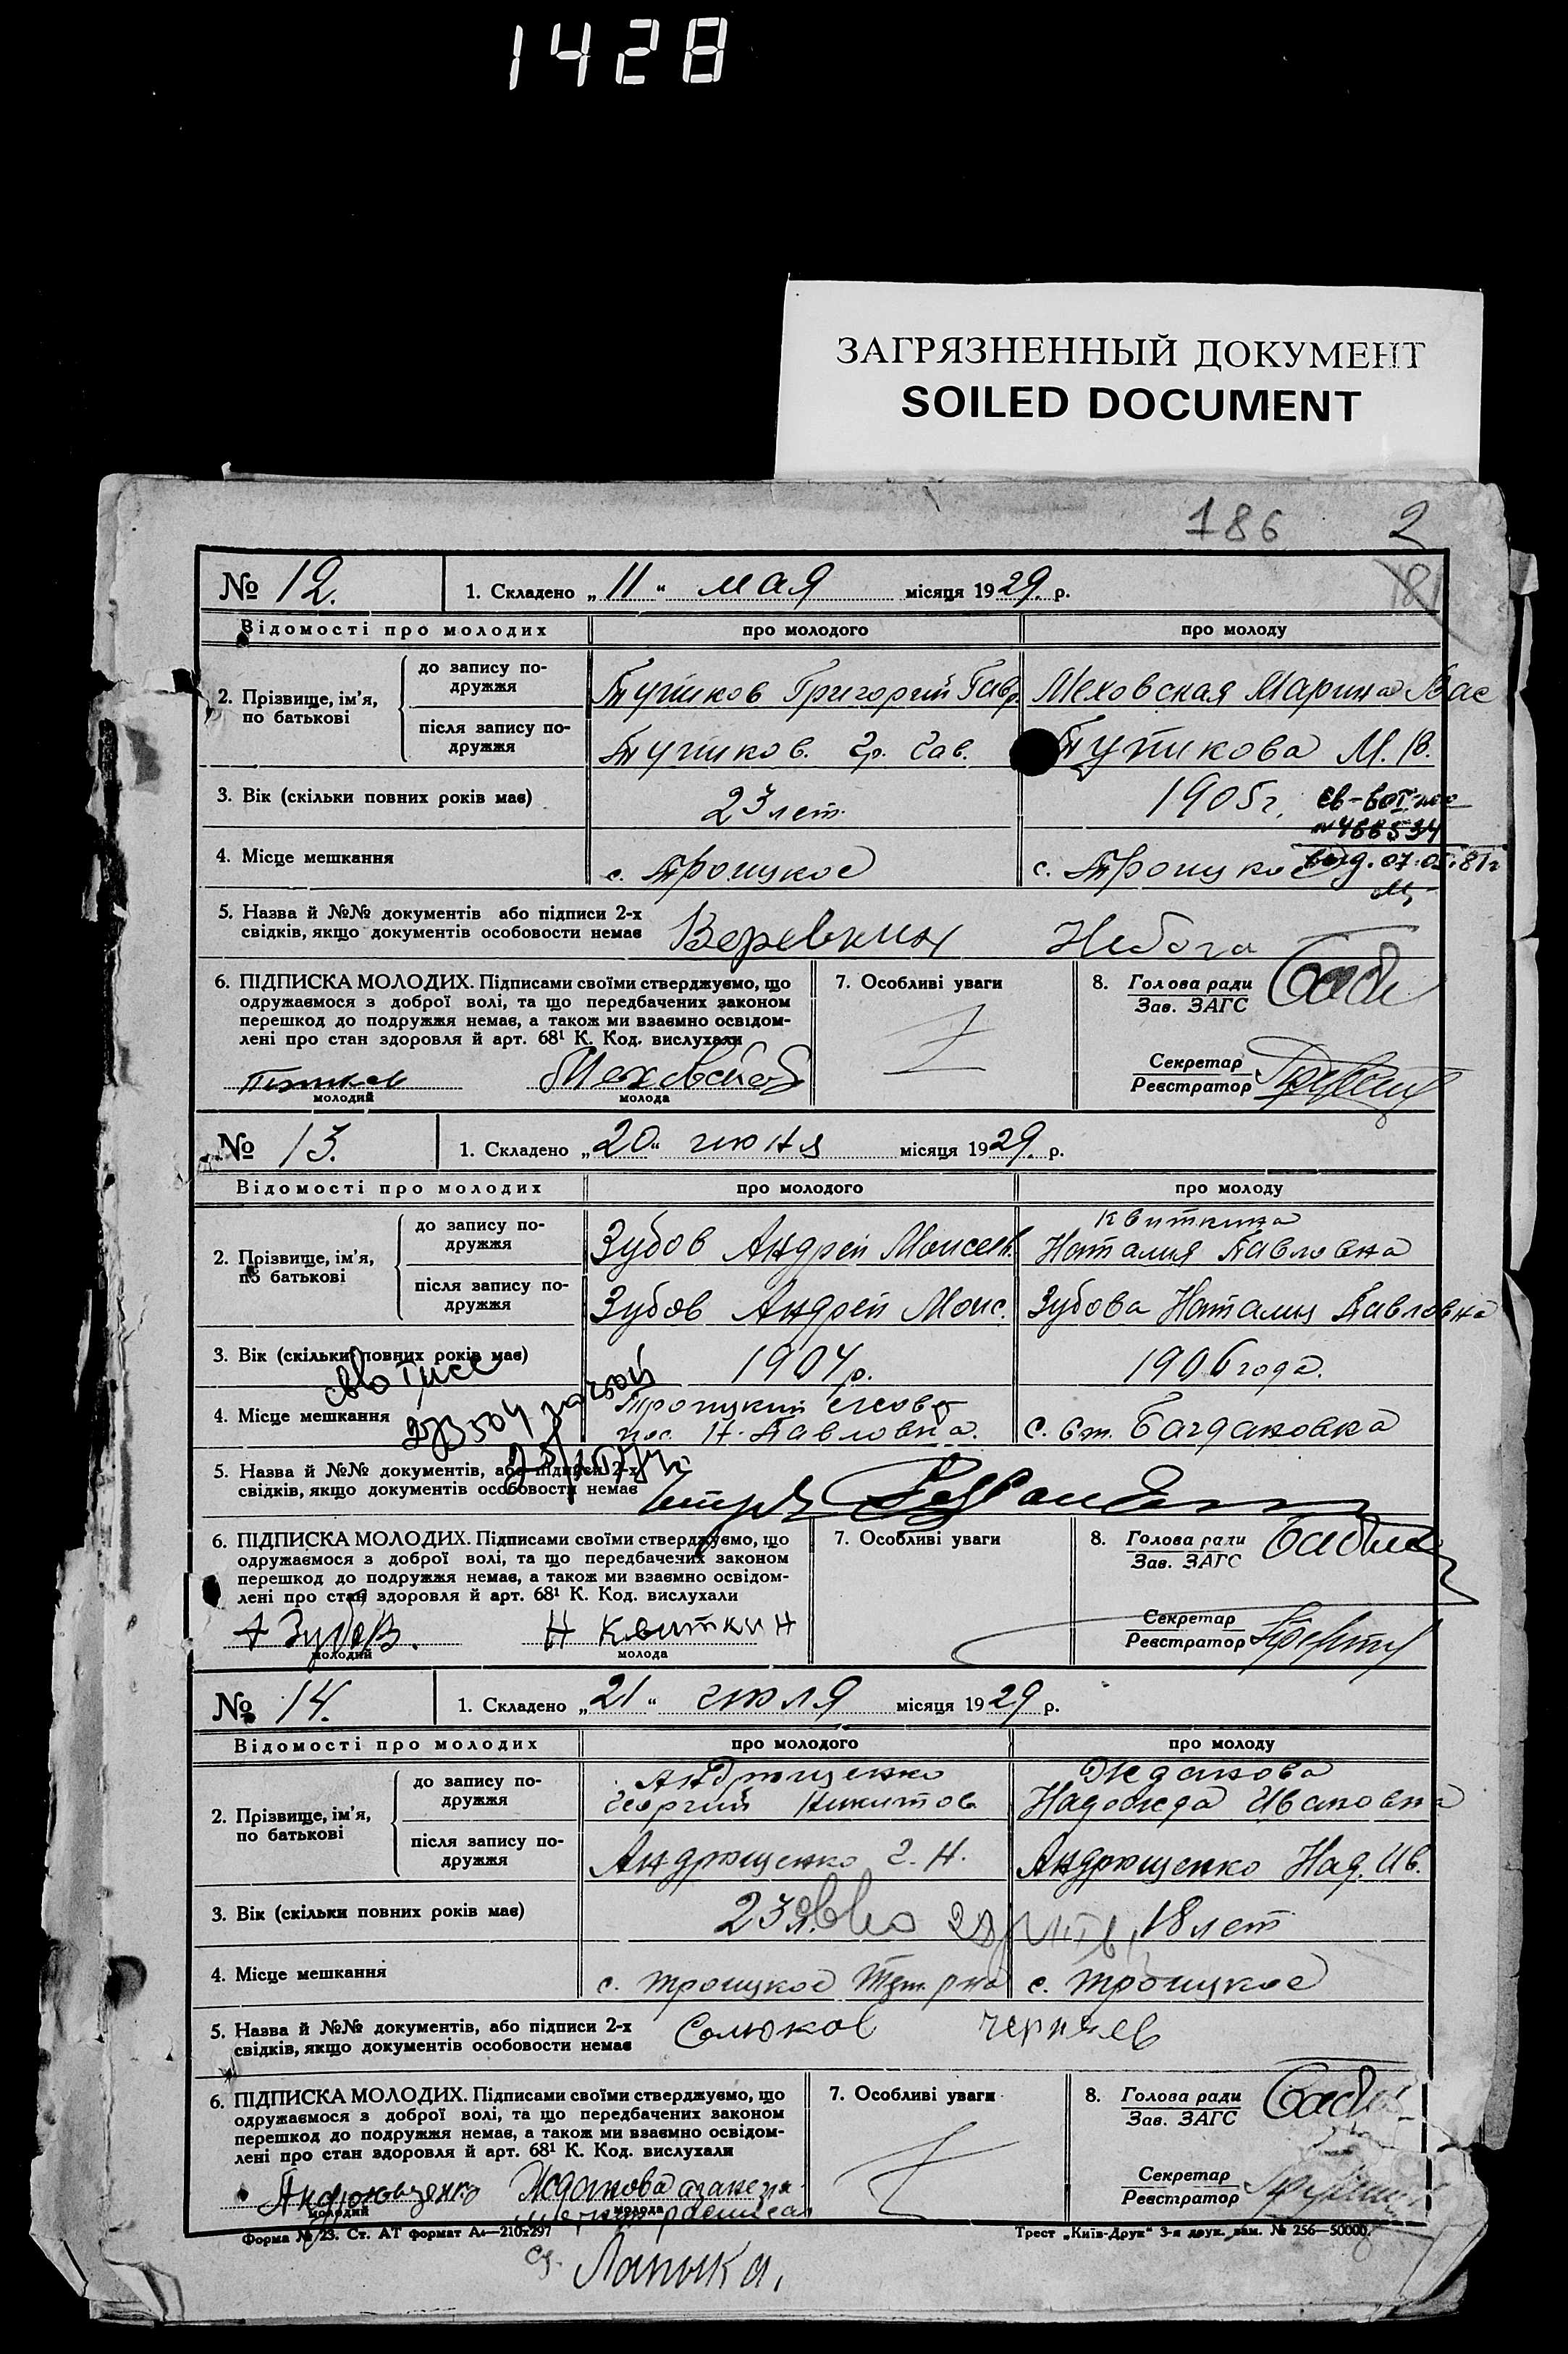 1428
ЗАГРЯЗНЕННЫЙ ДОКУМЕНТ
SOILED DOCUMENT
186 2
181
№ 12. 1. Складено „11“ мая місяця 1929. р.
Відомості про молодих про молодого про молоду
2. Прізвище, ім'я, по батькові
до запису подружжя Тупиков Григорий Гавр. Меховская Марина Вас
після запису подружжя Тупиков. Гр. Гав. Тупикова М. В.
3. Вік (скільки повних років має) 23 лет. 1905 г.
св-во
№ 488534
выд. 07.05.81г
4. Місце мешкання с. Троицкое с. Троицкое
5. Назва й №№ документів або підписи 2-х
свідків, якщо документів особовости немає Веревкин Небога
6. ПІДПИСКА МОЛОДИХ. Підписами своїми стверджуємо, що
одружаємося з доброї волі, та що передбачених законом
перешкод до подружжя немає, а також ми взаємно освідом-
лені про стан здоровля й арт. 68¹ К. Код. вислухали
Тупиков Меховской
молодий молода
7. Особливі уваги
8. Голова ради
Зав. ЗАГС
Секретар
Реєстратор
№ 13. 1. Складено „20“ июня місяця 1929. р.
Відомості про молодих про молодого про молоду
2. Прізвище, ім'я, по батькові
Квиткина
до запису подружжя Зубов Андрей Моисеев. Наталия Павловна
після запису подружжя Зубов Андрей Моис. Зубова Наталия Павловна
3. Вік (скільки повних років має) 1904 р. 1906 года.
4. Місце мешкання Троицкий
пос. Н. Павловка. с. ст. Багдановка
5. Назва й №№ документів, або підписи 2-х
свідків, якщо документів особовости немає
6. ПІДПИСКА МОЛОДИХ. Підписами своїми стверджуємо, що
одружаємося з доброї волі, та що передбачених законом
перешкод до подружжя немає, а також ми взаємно освідом-
лені про стан здоровля й арт. 68¹ К. Код. вислухали
А Зубов. Н Квиткин
молодий молода
7. Особливі уваги
8. Голова ради
Зав. ЗАГС
Секретар
Реєстратор
№ 14. 1. Складено „21“ июля місяця 1929 р.
Відомості про молодих про молодого про молоду
2. Прізвище, ім'я, по батькові
Андрющенко Жданова
до запису подружжя Георгий Никитов Надежда Ивановна
після запису подружжя Андрющенко Г. Н. Андрющенко Над. Ив.
3. Вік (скільки повних років має) 23 л. 18 лет
4. Місце мешкання с. Троицкое с. Троицкое
5. Назва й №№ документів, або підписи 2-х
свідків, якщо документів особовости немає Солюков Черняев
6. ПІДПИСКА МОЛОДИХ. Підписами своїми стверджуємо, що
одружаємося з доброї волі, та що передбачених законом
перешкод до подружжя немає, а також ми взаємно освідом-
лені про стан здоровля й арт. 68¹ К. Код. вислухали
Андрюющенко Жданова
молодий молода
7. Особливі уваги
8. Голова ради
Зав. ЗАГС
Секретар
Реєстратор
Форма № 23. Ст. АТ формат А₄—210х297 Трест „Київ-Друк“ 3-я друк. зам. № 256—50000.